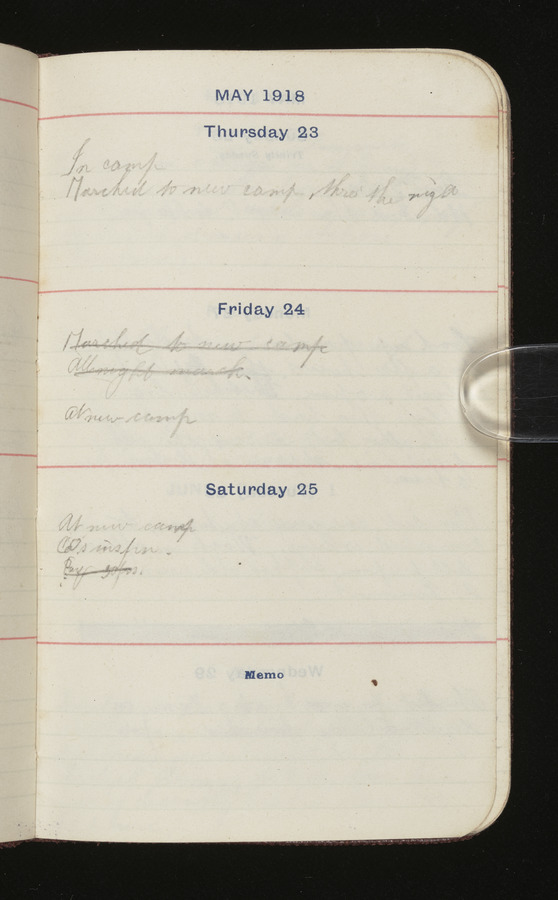 MAY 1918
Thursday 23
In camp
Marched to new camp, thro' the night
Friday 24
Marched to new camp
All night march.
At new camp
Saturday 25
At new camp
CO's inspn.
Pay
Memo